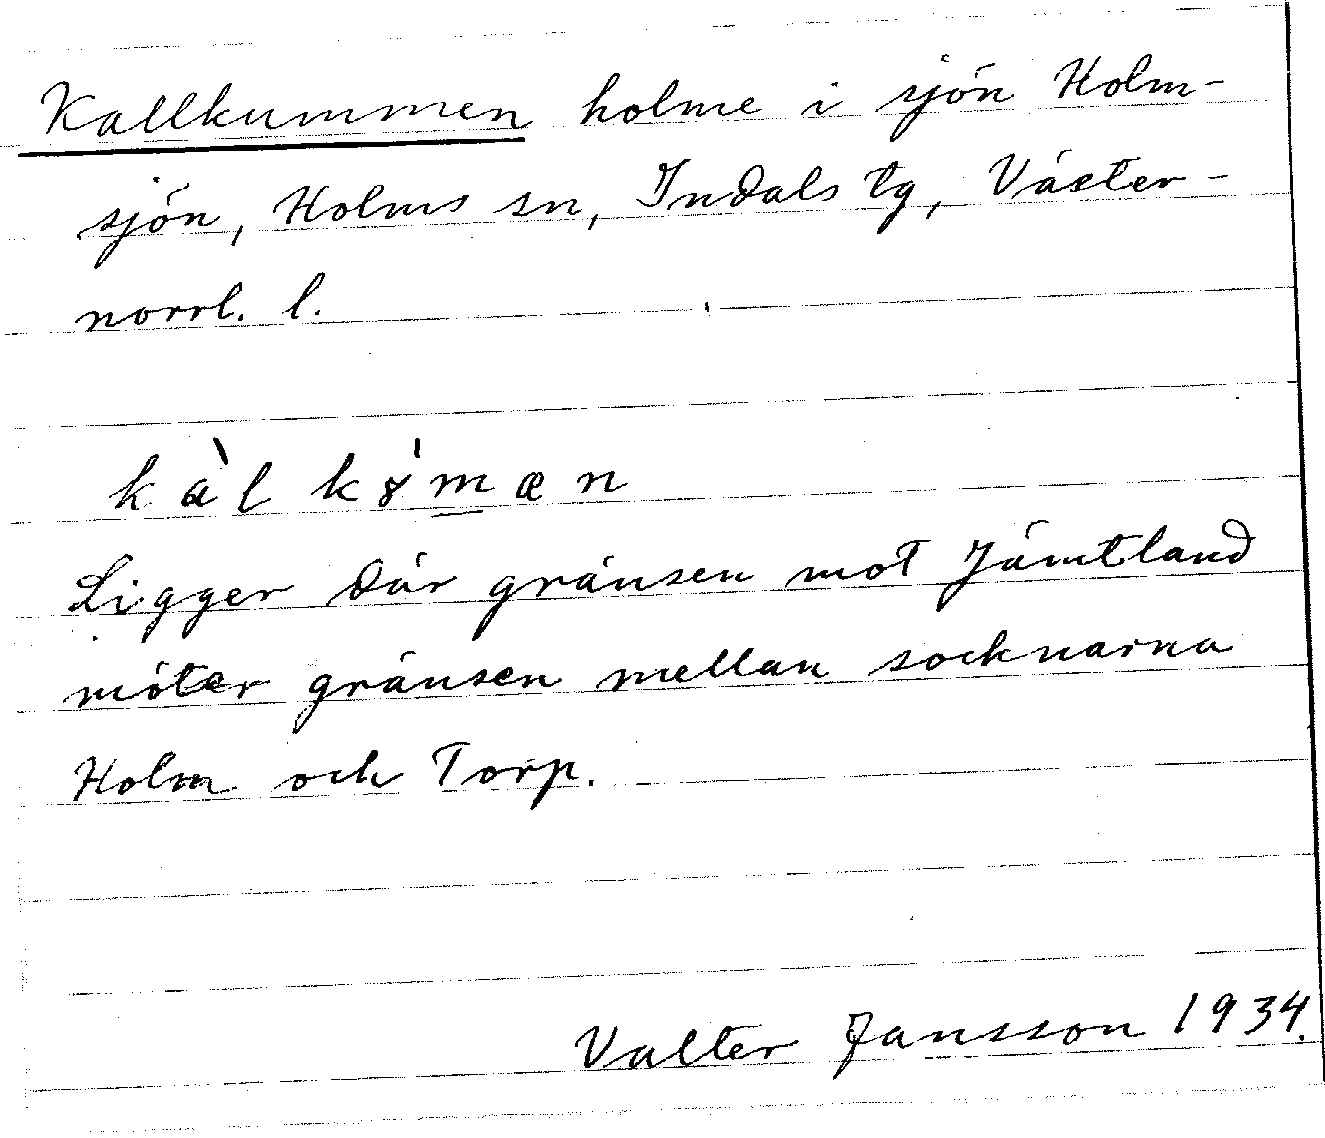 Kallkummen holme i sjön Holm-
sjön, Holms sn, Indals tg, Väster-
norrl. l.
kàl kɤ́mæn
Ligger där gränsen mot Jämtland
möter gränsen mellan socknarna
Holm och Torp.
Valter Jansson 1934.